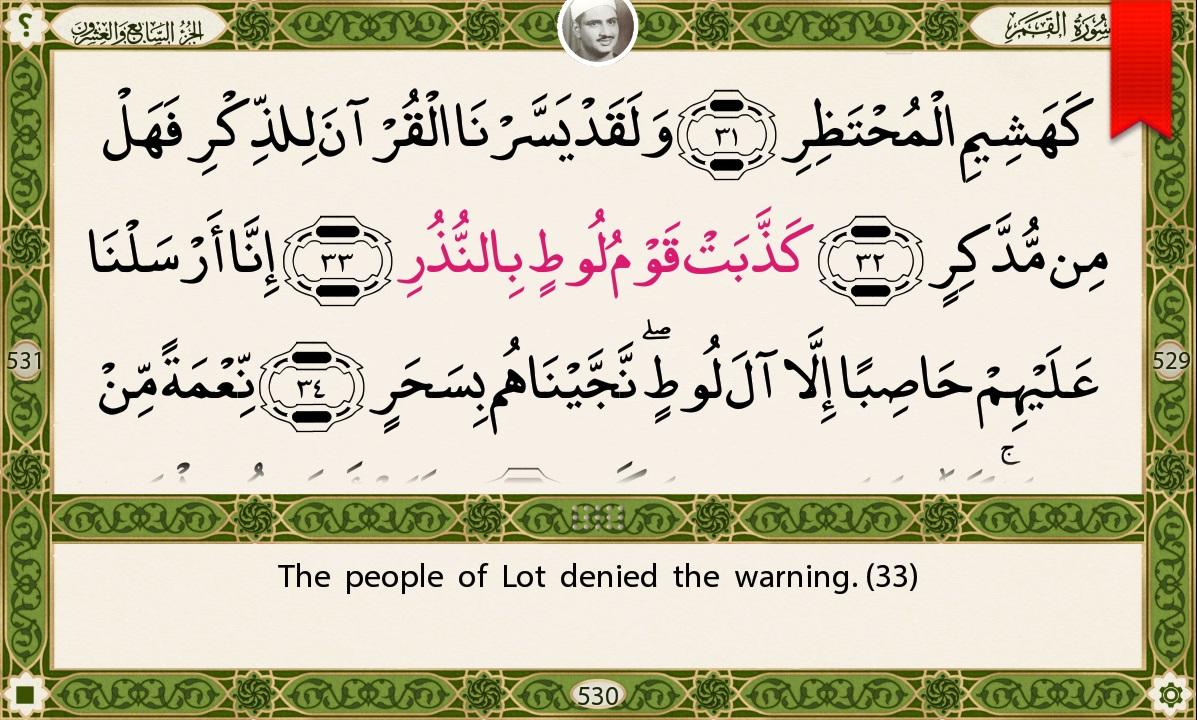 ؟
الجزء السابع والعشرون
سُورَةُ القَمَر
كَهَشِيمِ الْمُحْتَظِرِ ٣١ وَلَقَدْ يَسَّرْنَا الْقُرْآنَ لِلذِّكْرِ فَهَلْ
مِن مُّدَّكِرٍ ٣٢ كَذَّبَتْ قَوْمُ لُوطٍ بِالنُّذُرِ ٣٣ إِنَّا أَرْسَلْنَا
عَلَيْهِمْ حَاصِبًا إِلَّا آلَ لُوطٍ ۖ نَّجَّيْنَاهُم بِسَحَرٍ ٣٤ نِّعْمَةً مِّنْ
531
529
The people of Lot denied the warning. (33)
530